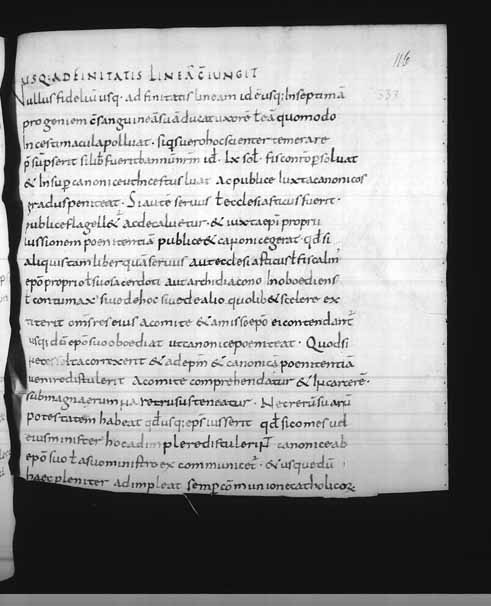 116
333
USQ· ADFINITATIS LINEĀ C̄IUNGIT
Nullus fidelium usq· ad finitatis lineam id ē usq; In septimā
progeniem c̄sanguineā suā ducat uxorē t̄ eā quomodo
Incesti macula polluat· siq̄s uero hoc scienter temerare
p̄sūpserit si lib̄ fuerit bannum nr̄m id· lx sol· fisco nr̄o p̄soluat
& Insup canonice ut Incestus luat Ac publice Iuxta canonicos
gradus peniteat· Si autē seruus t̄ ecclesiasticus fuerit·
publice flagell& ac decaluetur· & iuxta ep̄i proprii
iussionem poenitentiā publice & canonice gerat· qd̄ si
aliquis tam liber quā seruus aut ecclesiasticus t̄ fiscalin
ep̄o proprio t̄ suo sacerdoti aut archidiacono Inoboediens
t̄ contumax siue de hoc siue de alio quolib& scelere ex
titerit om̄s res eius a comite & a misso ep̄o ei contendant̄
usq; dū ep̄o suo oboediat ut canonice poeniteat· Quod si
nec se ita correxerit & ad ep̄m & canonicā poenitentiā
uenire distulerit A comite comprehendatur & In carcere·
sub magna erumna retrusus teneatur· Nec rerū suarū
potestatem habeat qd̄usq; ep̄s iusserit qd̄ si comes ud
eius minister hoc adimplere distulerit canonice ab
ep̄o suo t̄ a suo ministro ex communicet̄· & usquedū
haec pleniter adimpleat semp cōmunione catholicor